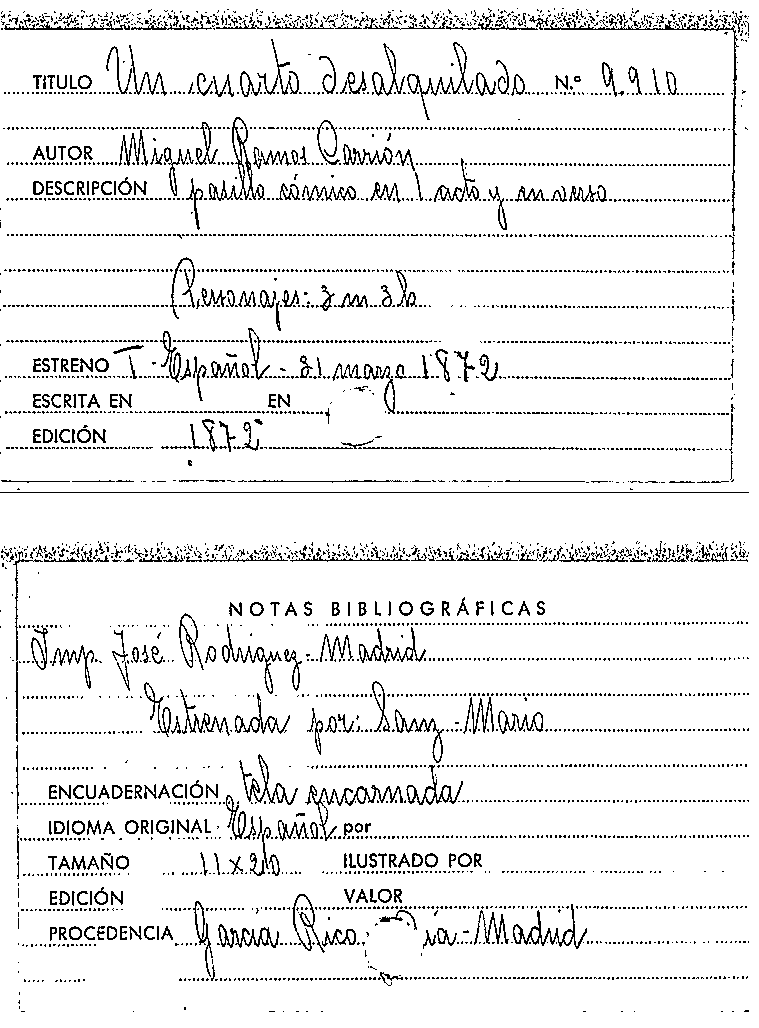 TITULO Un cuarto desalquilado N.º 9.910
AUTOR Miguel Ramos Carrión
DESCRIPCIÓN pasillo cómico en 1 acto y en verso
Personajes: 3 m 3 h
ESTRENO T. Español - 31 marzo 1872
ESCRITA EN EN
EDICIÓN 1872
NOTAS BIBLIOGRÁFICAS
Imp. José Rodriguez - Madrid
Estrenada por: Sanz - Mario
ENCUADERNACIÓN tela encarnada
IDIOMA ORIGINAL Español por
TAMAÑO 11 x 20 ILUSTRADO POR
EDICIÓN VALOR
PROCEDENCIA Garcia Rico ia - Madrid